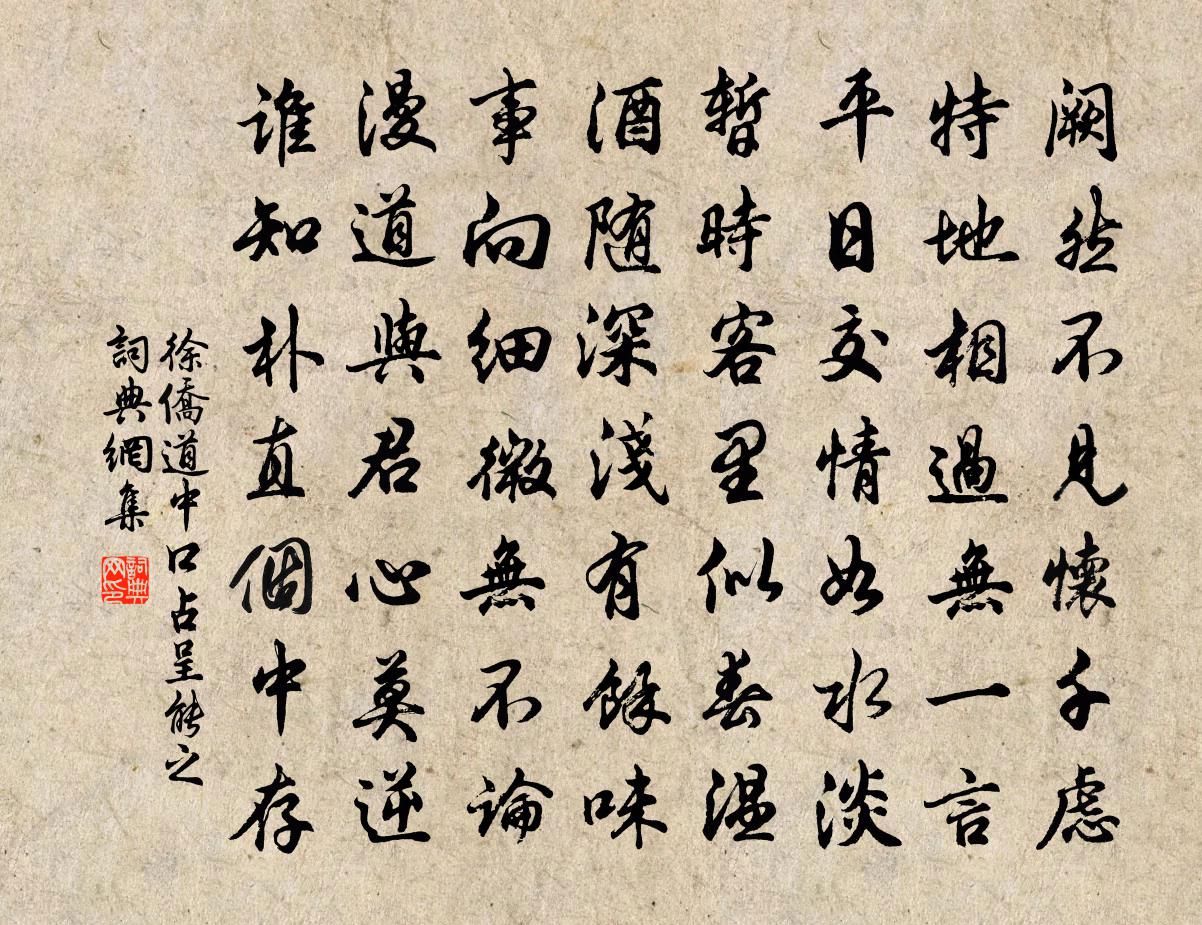 阙然不見懷千慮
特地相過無一言
平日交情如水淡
暫時客里似春温
酒随深淺有餘味
事向细微無不論
漫道與君心莫逆
谁知朴直個中存
徐僑道中口占呈能之
詞典網集
詞典网印